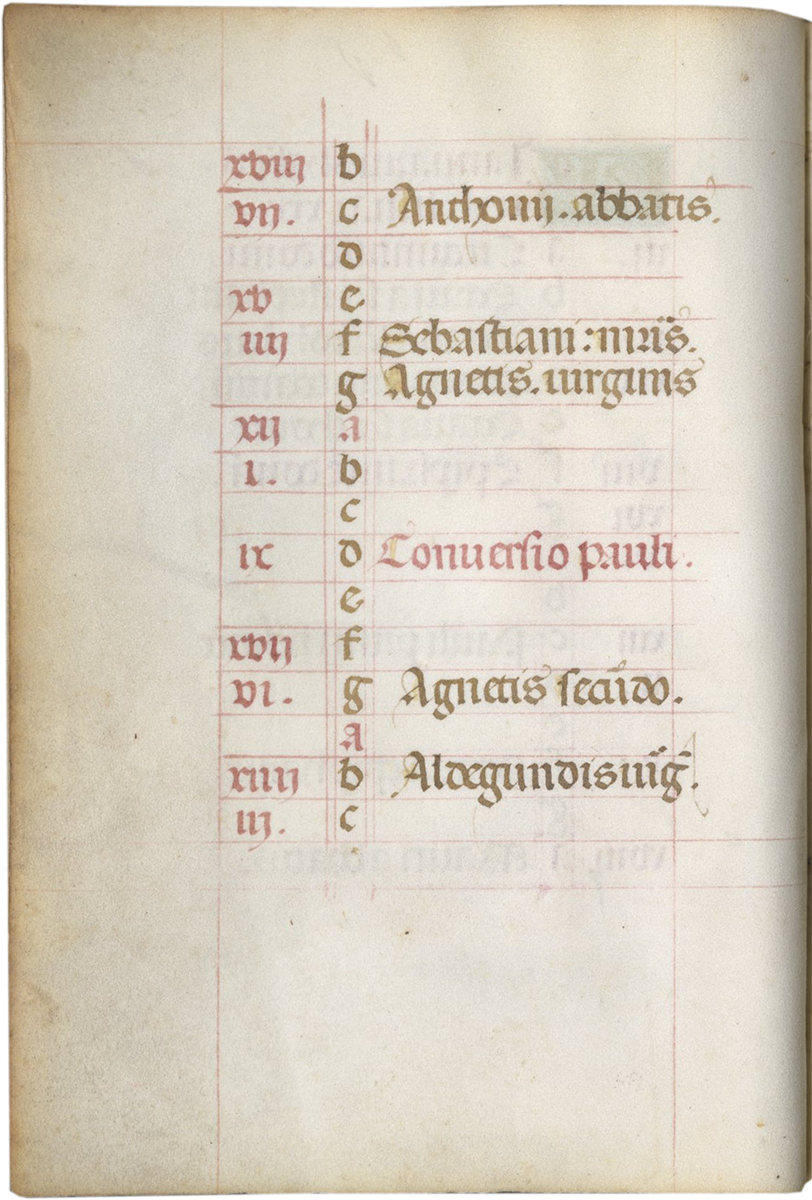 xviij b
vij. c Anthonij. abbatis.
d
xv e
iiij f Sebastiani: mr̄is.
g Agnetis. uirginis
xij a
i. b
c
ix d Conuersio pauli.
e
xvij f
vi. g Agnetis secūdo.
a
xiiij b Aldegundis uīḡ.
iij. c